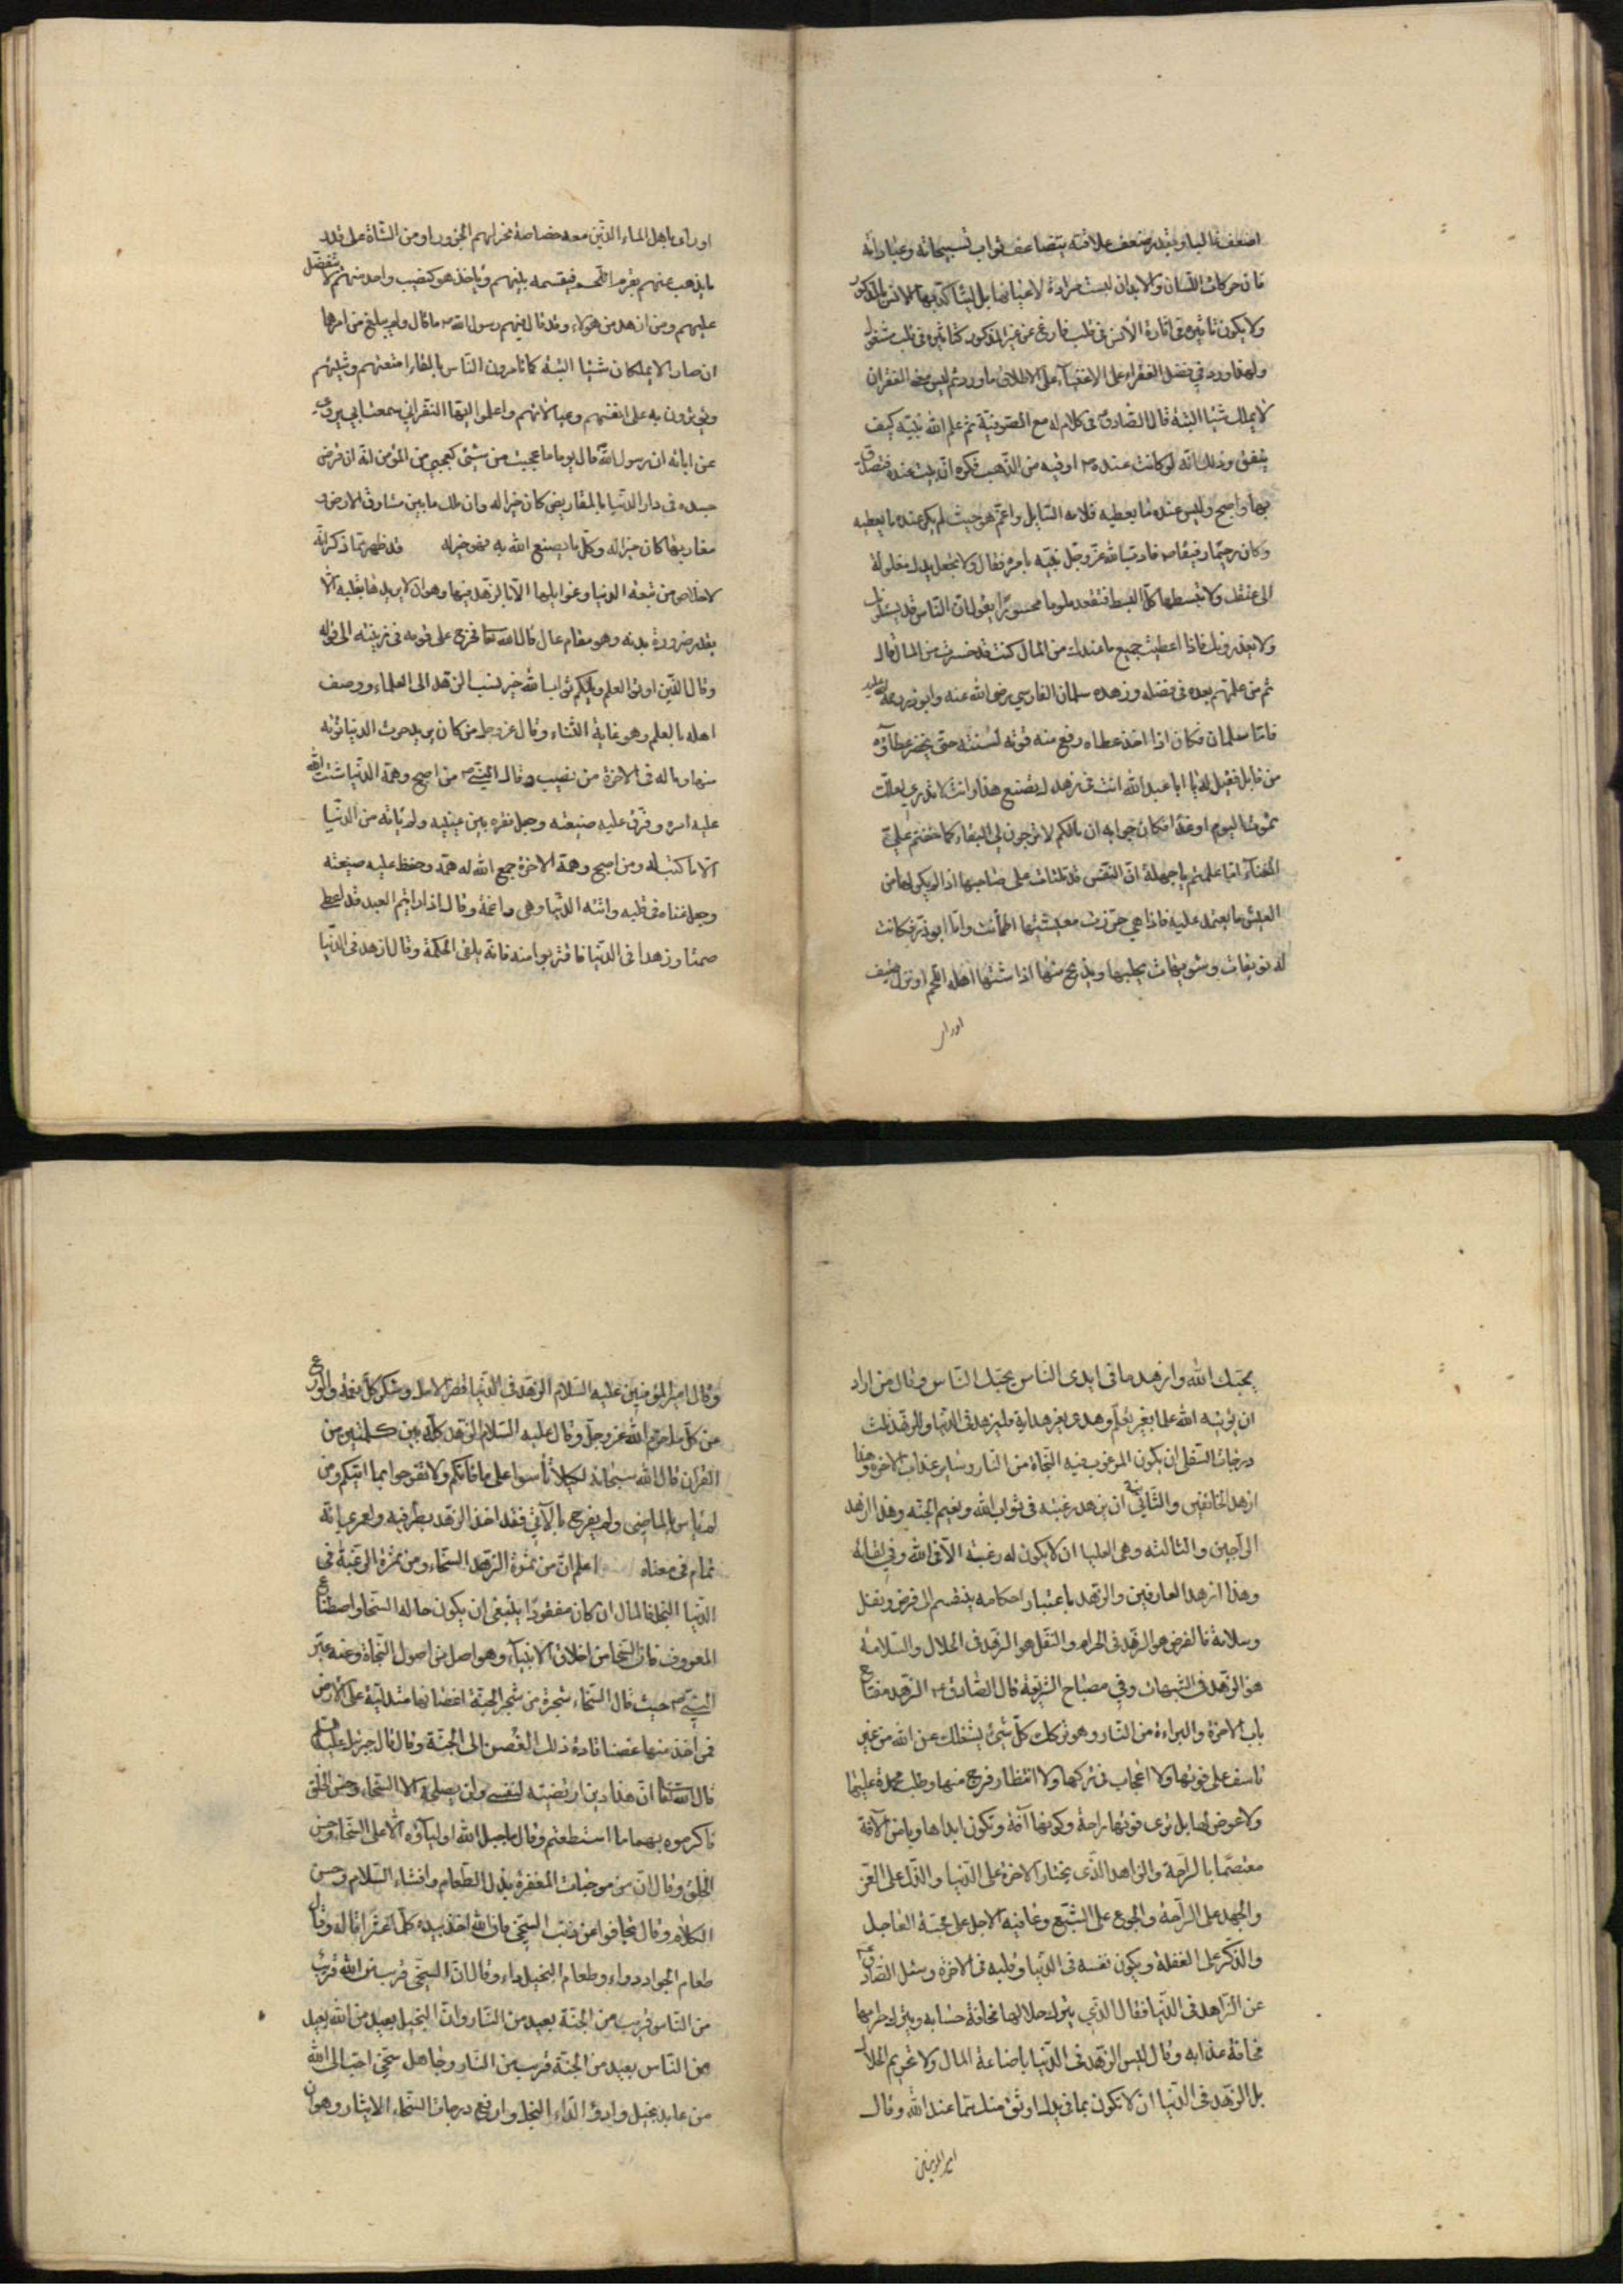 اضعف غالبا وبقدر ضعف علاقته يتضاعف ثواب تسبيحاته وعباداته
فان حركات اللسان والابدان ليست مرادة لاعيانها بل ليتاكد بها الانس بالمذكور
ولا يكون تاثيره في اثارة الانس في قلب فارغ عن غير المذكور كتاثيره في قلب مشغول
ولهذا ورد في فضل الفقراء على الاغنياء على الاطلاق ما ورد ثم ليس معنى الفقر ان
لا يملك شيئا البتة قال الصادق ع في كلام له مع الصوفية ثم علم الله نبيه كيف
ينفق وذلك انه كانت عنده ص اوقية من الذهب فكره ان تبيت عنده فتصدق
بها واصبح وليس عنده ما يعطيه فلامه السايل واغتم هو حيث لم يكن عنده ما يعطيه
وكان رحيما رفيقا ص فادب الله عز وجل نبيه بامره فقال ولا تجعل يدك مغلولة
الى عنقك ولا تبسطها كل البسط فتقعد ملوما محسورا يقول ان الناس قد يسئلونك
ولا يعذرونك فاذا اعطيت جميع ما عندك من المال كنت قد خسرت من المال قال
ثم من علمتم بعده في فضله وزهده سلمان الفارسي رضي الله عنه وابو ذر رحمة الله عليه
فاما سلمان فكان اذا اخذ عطاه رفع منه قوته لسنته حتى يحضر عطاؤه
من قابل فقيل له يا ابا عبد الله انت في زهدك تصنع هذا وانت لا تدري لعلك
تموت اليوم او غدا فكان جوابه ان مالكم لا ترجون لي البقاء كما خفتم علي
الفناء اما علمتم يا جهلة ان النفس قد تلتاث على صاحبها اذا لم يكن لها من
العيش ما يعتمد عليه فاذا هي احرزت معيشتها اطمانت واما ابو ذر فكانت
له نويقات وشويهات يحلبها ويذبح منها اذا اشتهى اهله اللحم او نزل به ضيف
او راى
او راى باهل الماء الذين معه خصاصة نحر لهم الجزور او من الشاة على قدر
ما يذهب عنهم بقرم اللحم فيقسمه بينهم وياخذ هو كنصيب واحد منهم لا يتفضل
عليهم ومن ازهد من هؤلاء وقد قال فيهم رسول الله ص ما قال ولم يبلغ من امرها
ان صارا لا يملكان شيئا البتة كما تامرون الناس بالقاء امتعتهم وشيئهم
ويؤثرون به على انفسهم وعيالاتهم واعلموا ايها النفر اني سمعت ابي يروي
عن ابائه ان رسول الله ص قال يوما ما عجبت من شيء كعجبي من المؤمن انه ان قرض
جسده في دار الدنيا بالمقاريض كان خيرا له وان ملك ما بين مشارق الارض و
مغاربها كان خيرا له وكل ما يصنع الله به فهو خير له قد ظهر مما ذكر انه
لا خلاص من تبعة الدنيا وغوايلها الا بالزهد فيها وهو ان لا يريدها بقلبه الا
بقدر ضرورة بدنه وهو مقام عال قال الله تعا فخرج على قومه في زينته الى قوله
وقال الذين اوتوا العلم ويلكم ثواب الله خير نسب الزهد الى العلماء ووصف
اهله بالعلم وهو غاية الثناء وقال عز وجل من كان يريد حرث الدنيا نؤته
منها وماله في الاخرة من نصيب وقال النبي ص من اصبح وهمه الدنيا شتت الله
عليه امره وفرق عليه ضيعته وجعل فقره بين عينيه ولم ياته من الدنيا
الا ما كتب له ومن اصبح وهمه الاخرة جمع الله له همه وحفظ عليه ضيعته
وجعل غناه في قلبه واتته الدنيا وهي راغمة وقال اذا رايتم العبد قد اعطي
صمتا وزهدا في الدنيا فاقتربوا منه فانه يلقى الحكمة وقال ازهد في الدنيا
يحبك الله وازهد ما في ايدى الناس يحبك الناس وقال من اراد
ان يؤتيه الله علما بغير تعلم وهدى بغير هداية فليزهد في الدنيا وللزهد ثلث
درجات السفلى ان يكون المرغوب فيه النجاة من النار وساير عذاب الاخرة وهذا
ازهد الخائفين والثانية ان يزهد رغبة في ثواب الله ونعيم الجنة وهذا ازهد
الراجين والثالثة وهي العليا ان لا يكون له رغبة الا في الله وفي لقائه
وهذا ازهد العارفين والزهد باعتبار احكامه ينقسم الى فرض ونفل
وسلامة فالفرض هو الزهد في الحرام والنفل هو الزهد في الحلال والسلامة
هو الزهد في الشبهات وفي مصباح الشريعة قال الصادق ع الزهد مفتاح
باب الاخرة والبراءة من النار وهو تركك كل شيء يشغلك عن الله من غير
تاسف على فوتها ولا اعجاب في تركها ولا انتظار فرج منها وطلب محمدة عليها
ولا عوض لها بل ترى فوتها راحة وكونها آفة وتكون ابدا هاربا من الآفة
معتصما بالراحة والزاهد الذي يختار الاخرة على الدنيا والذل على العز
والجهد على الراحة والجوع على الشبع وعافية الاجل على محبة العاجل
والذكر على الغفلة ويكون نفسه في الدنيا وقلبه في الاخرة وسئل الصادق ع
عن الزاهد في الدنيا فقال الذي يترك حلالها مخافة حسابه ويترك حرامها
مخافة عذابه وقال ليس الزهد في الدنيا باضاعة المال ولا تحريم الحلال
بل الزهد في الدنيا ان لا تكون بما في يدك اوثق منك بما عند الله وقال
امير المؤمنين
وقال امير المؤمنين عليه السلام الزهد في الدنيا قصر الامل وشكر كل نعمة والورع
عن كل ما حرم الله عز وجل وقال عليه السلام الزهد كله بين كلمتين من
القران قال الله سبحانه لكيلا تأسوا على ما فاتكم ولا تفرحوا بما اتيكم ومن
لم ياس بالماضي ولم يفرح بالآتي فقد اخذ الزهد بطرفيه ولعمري انه
تمام في معناه اعلم ان من ثمرة الزهد السخاء ومن ثمرة الرغبة في
الدنيا البخل فالمال ان كان مفقودا ينبغي ان يكون حاله السخا واصطناع
المعروف فان السخا من اخلاق الانبياء وهو اصل من اصول النجاة وعنه عبر
النبي ص حيث قال السخاء شجرة من شجر الجنة اغصانها متدلية على الارض
فمن اخذ منها غصنا قاده ذلك الغصن الى الجنة وقال قال جبرئيل عليه السلام
قال الله تعا ان هذا دين ارتضيته لنفسي ولن يصلحه الا السخاء وحسن الخلق
فاكرموه بهما ما استطعتم وقال ما جبل الله اولياؤه الا على السخاء وحسن
الخلق وقال ان من موجبات المغفرة بذل الطعام وافشاء السلام وحسن
الكلام وقال تجافوا عن ذنب السخي فان الله اخذ بيده كلما عثر اقاله وقال
طعام الجواد دواء وطعام البخيل داء وقال ان السخي قريب من الله قريب
من الناس قريب من الجنة بعيد من النار وان البخيل بعيد من الله بعيد
من الناس بعيد من الجنة قريب من النار وجاهل سخي احب الى الله
من عابد بخيل وادوأ الداء البخل وارفع درجات السخاء الايثار وهو ان